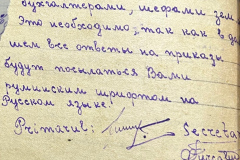 бухгалтерами, шефами зем
Это необходимо, так как в да
шем все ответы на приказы
будут посылаться Вами
румынским шрифтом на
Русском языке!
Primarul: Secretar